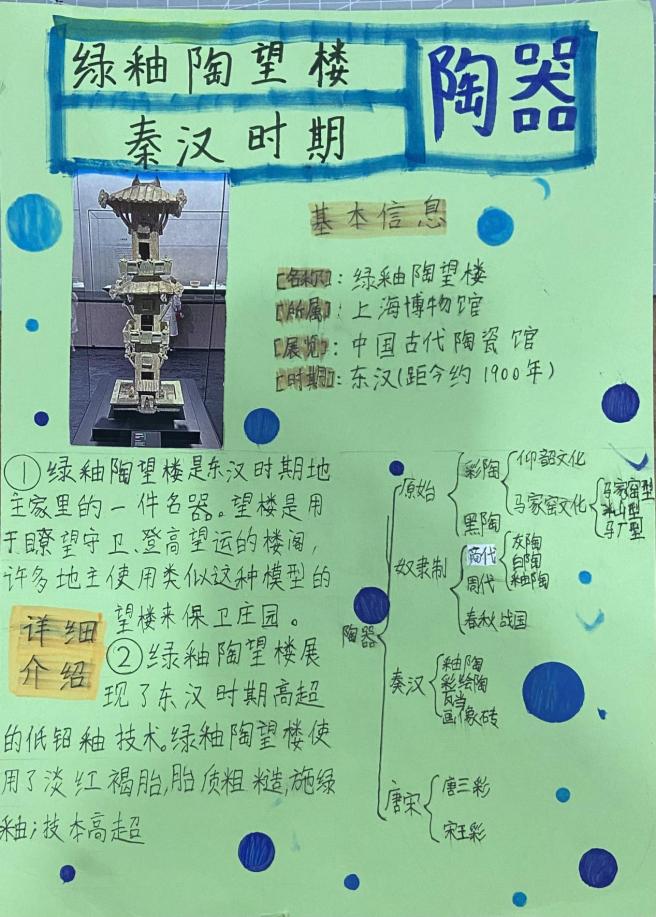 绿釉陶望楼
秦汉时期
陶器
基本信息
[名称]：绿釉陶望楼
[所属]：上海博物馆
[展览]：中国古代陶瓷馆
[时期]：东汉(距今约1900年)
①绿釉陶望楼是东汉时期地
主家里的一件名器。望楼是用
于瞭望守卫、登高望运的楼阁，
许多地主使用类似这种模型的
望楼来保卫庄园。
详细
介绍
②绿釉陶望楼展
现了东汉时期高超
的低铅釉技术。绿釉陶望楼使
用了淡红褐胎，胎质粗糙，施绿
釉；技本高超
陶器
原始
彩陶
仰韶文化
马家窑文化
马家窑型
半山型
马厂型
黑陶
奴隶制
商代
灰陶
白陶
釉陶
周代
春秋战国
秦汉
釉陶
彩绘陶
瓦当
画像砖
唐宋
唐三彩
宋王彩